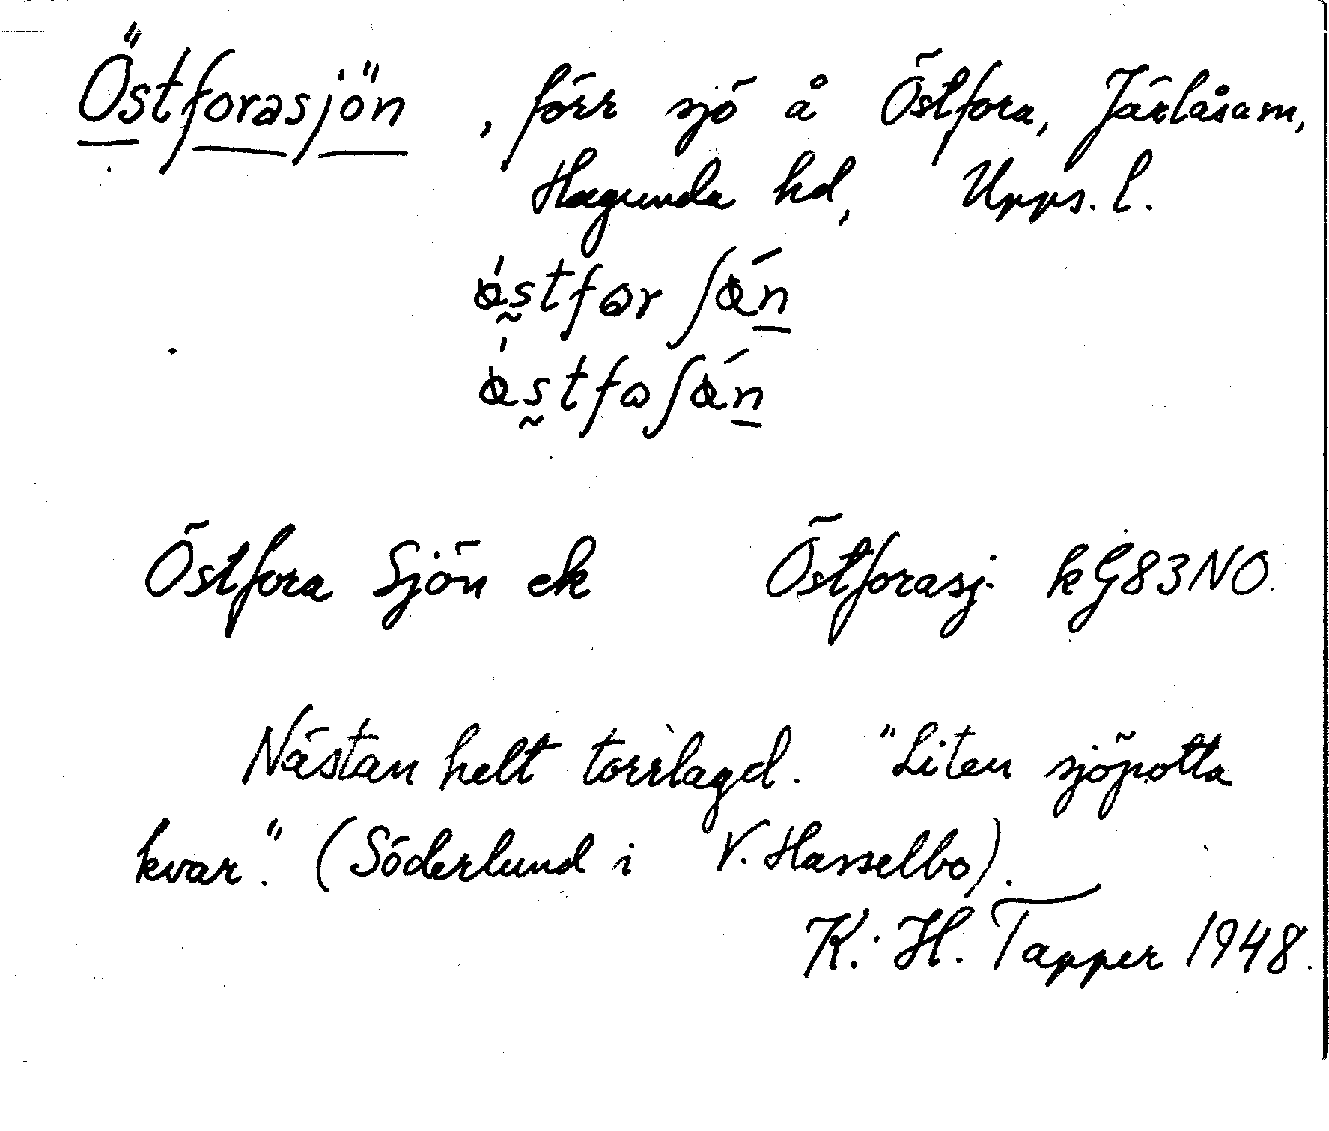 Östforasjön, förr sjö å Östfora, Järlåsa sn,
Hagunda hd, Upps. l.
Östfora Sjön ek Östforasj. kG83NO.
Nästan helt torrlagd. "Liten sjöpotta
kvar". (Söderlund i V. Hasselbo).
K. H. Tapper 1948.